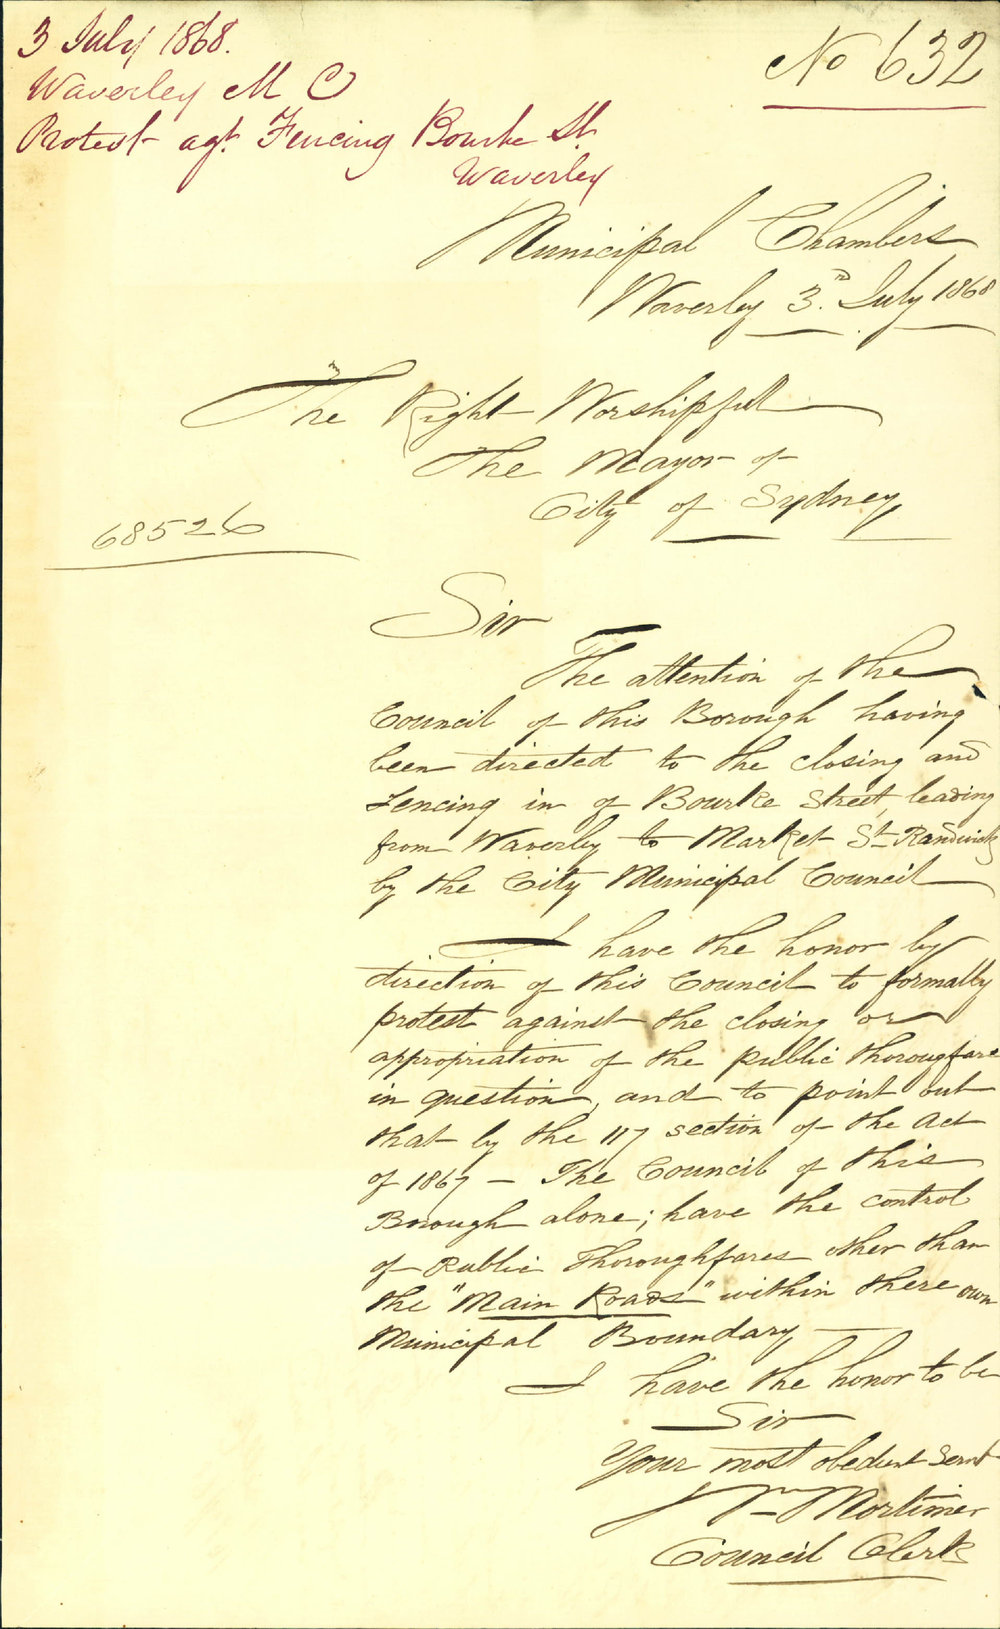 3 July 1868.
Waverley M C
Protest agt. Fencing Bourke St.
Waverley
No 632
Municipal Chambers
Waverley 3rd. July 1868
The Right Worshipfull
The Mayor of
City of Sydney
68526
Sir
The attention of the
Council of this Borough having
been directed to the closing and
Fencing in of Bourke Street, leading
from Waverley to Market St Randwick
by the City Municipal Council
I have the honor by
direction of this Council to formally
protest against the closing or
appropriation of the public thorougfare
in question, and to point out
that by the 117 section of the Act
of 1867 – The Council of this
Borough alone; have the control
of Public Thoroughfares other than
the "Main Roads" within there own
Municipal Boundary
I have the honor to be
Sir
Your most obedient Servt
Wm Mortimer
Council Clerk